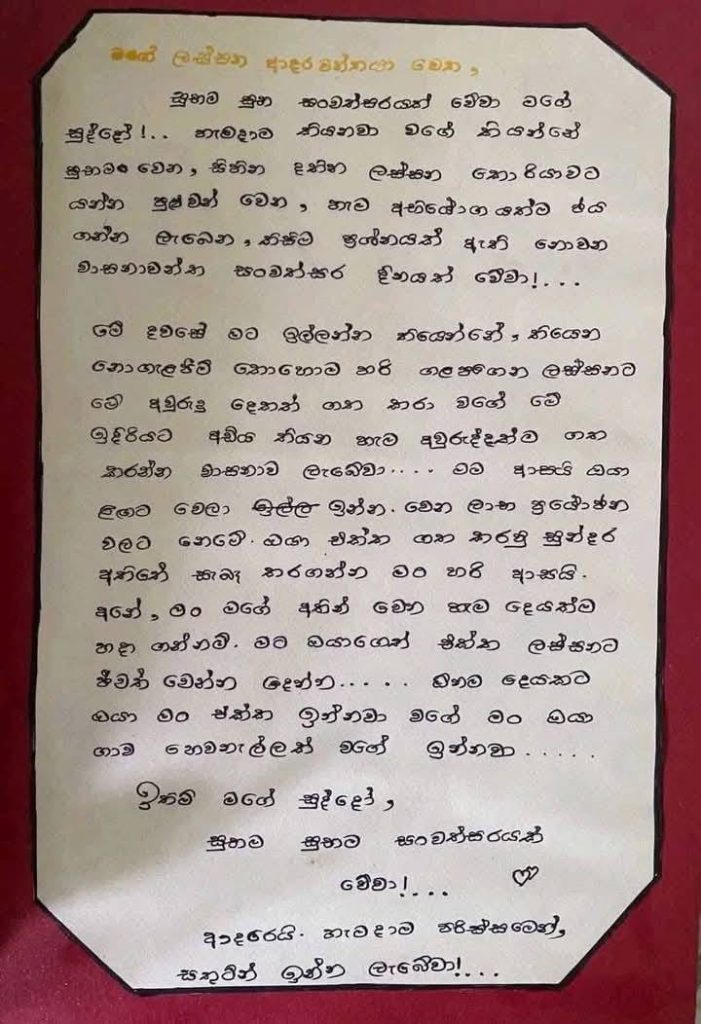 මගේ ලස්සන ආදරවන්තයා වෙත,
සුභම සුභ සංවත්සරයක් වේවා මගේ
සුද්දෝ!.. හැමදාම කියනවා වගේ කියන්නේ
සුභම වෙන, සිහින දකින ලස්සන කොරියාවට
යන්න පුළුවන් වෙන, හැම අභියෝගයක්ම ජය
ගන්න ලැබෙන, කිසිම ප්‍රශ්නයක් ඇති නොවන
වාසනාවන්ත සංවත්සර දිනයක් වේවා!...
මේ දවසේ මට ඉල්ලන්න තියෙන්නේ, තියෙන
නොගැලපීම් කොහොම හරි ගලපගෙන ලස්සනට
මේ අවුරුදු දෙකත් ගත කරා වගේ මේ
ඉදිරියට අඩිය තියන හැම අවුරුද්දක්ම ගත
කරන්න වාසනාව ලැබේවා.... මම ආසයි ඔයා
ළඟට වෙලා ඉල්ල ඉන්න. වෙන ලාභ ප්‍රයෝජන
වලට නෙමේ. ඔයා එක්ක ගත කරපු සුන්දර
අතීතේ සැබෑ කරගන්න මං හරි ආසයි.
අනේ, මං මගේ අතින් වෙන හැම දෙයක්ම
හදා ගන්නම්. මට ඔයාගෙත් එක්ක ලස්සනට
ජීවත් වෙන්න දෙන්න..... ඕනම දෙයකට
ඔයා මං එක්ක ඉන්නවා වගේ මං ඔයා
ගාව හෙවනැල්ලක් වගේ ඉන්නවා.....
ඉතිම් මගේ සුද්දෝ,
සුභම සුභම සංවත්සරයක්
වේවා!...
ආදරෙයි. හැමදාම පරිස්සමෙන්,
සතුටින් ඉන්න ලැබේවා!...